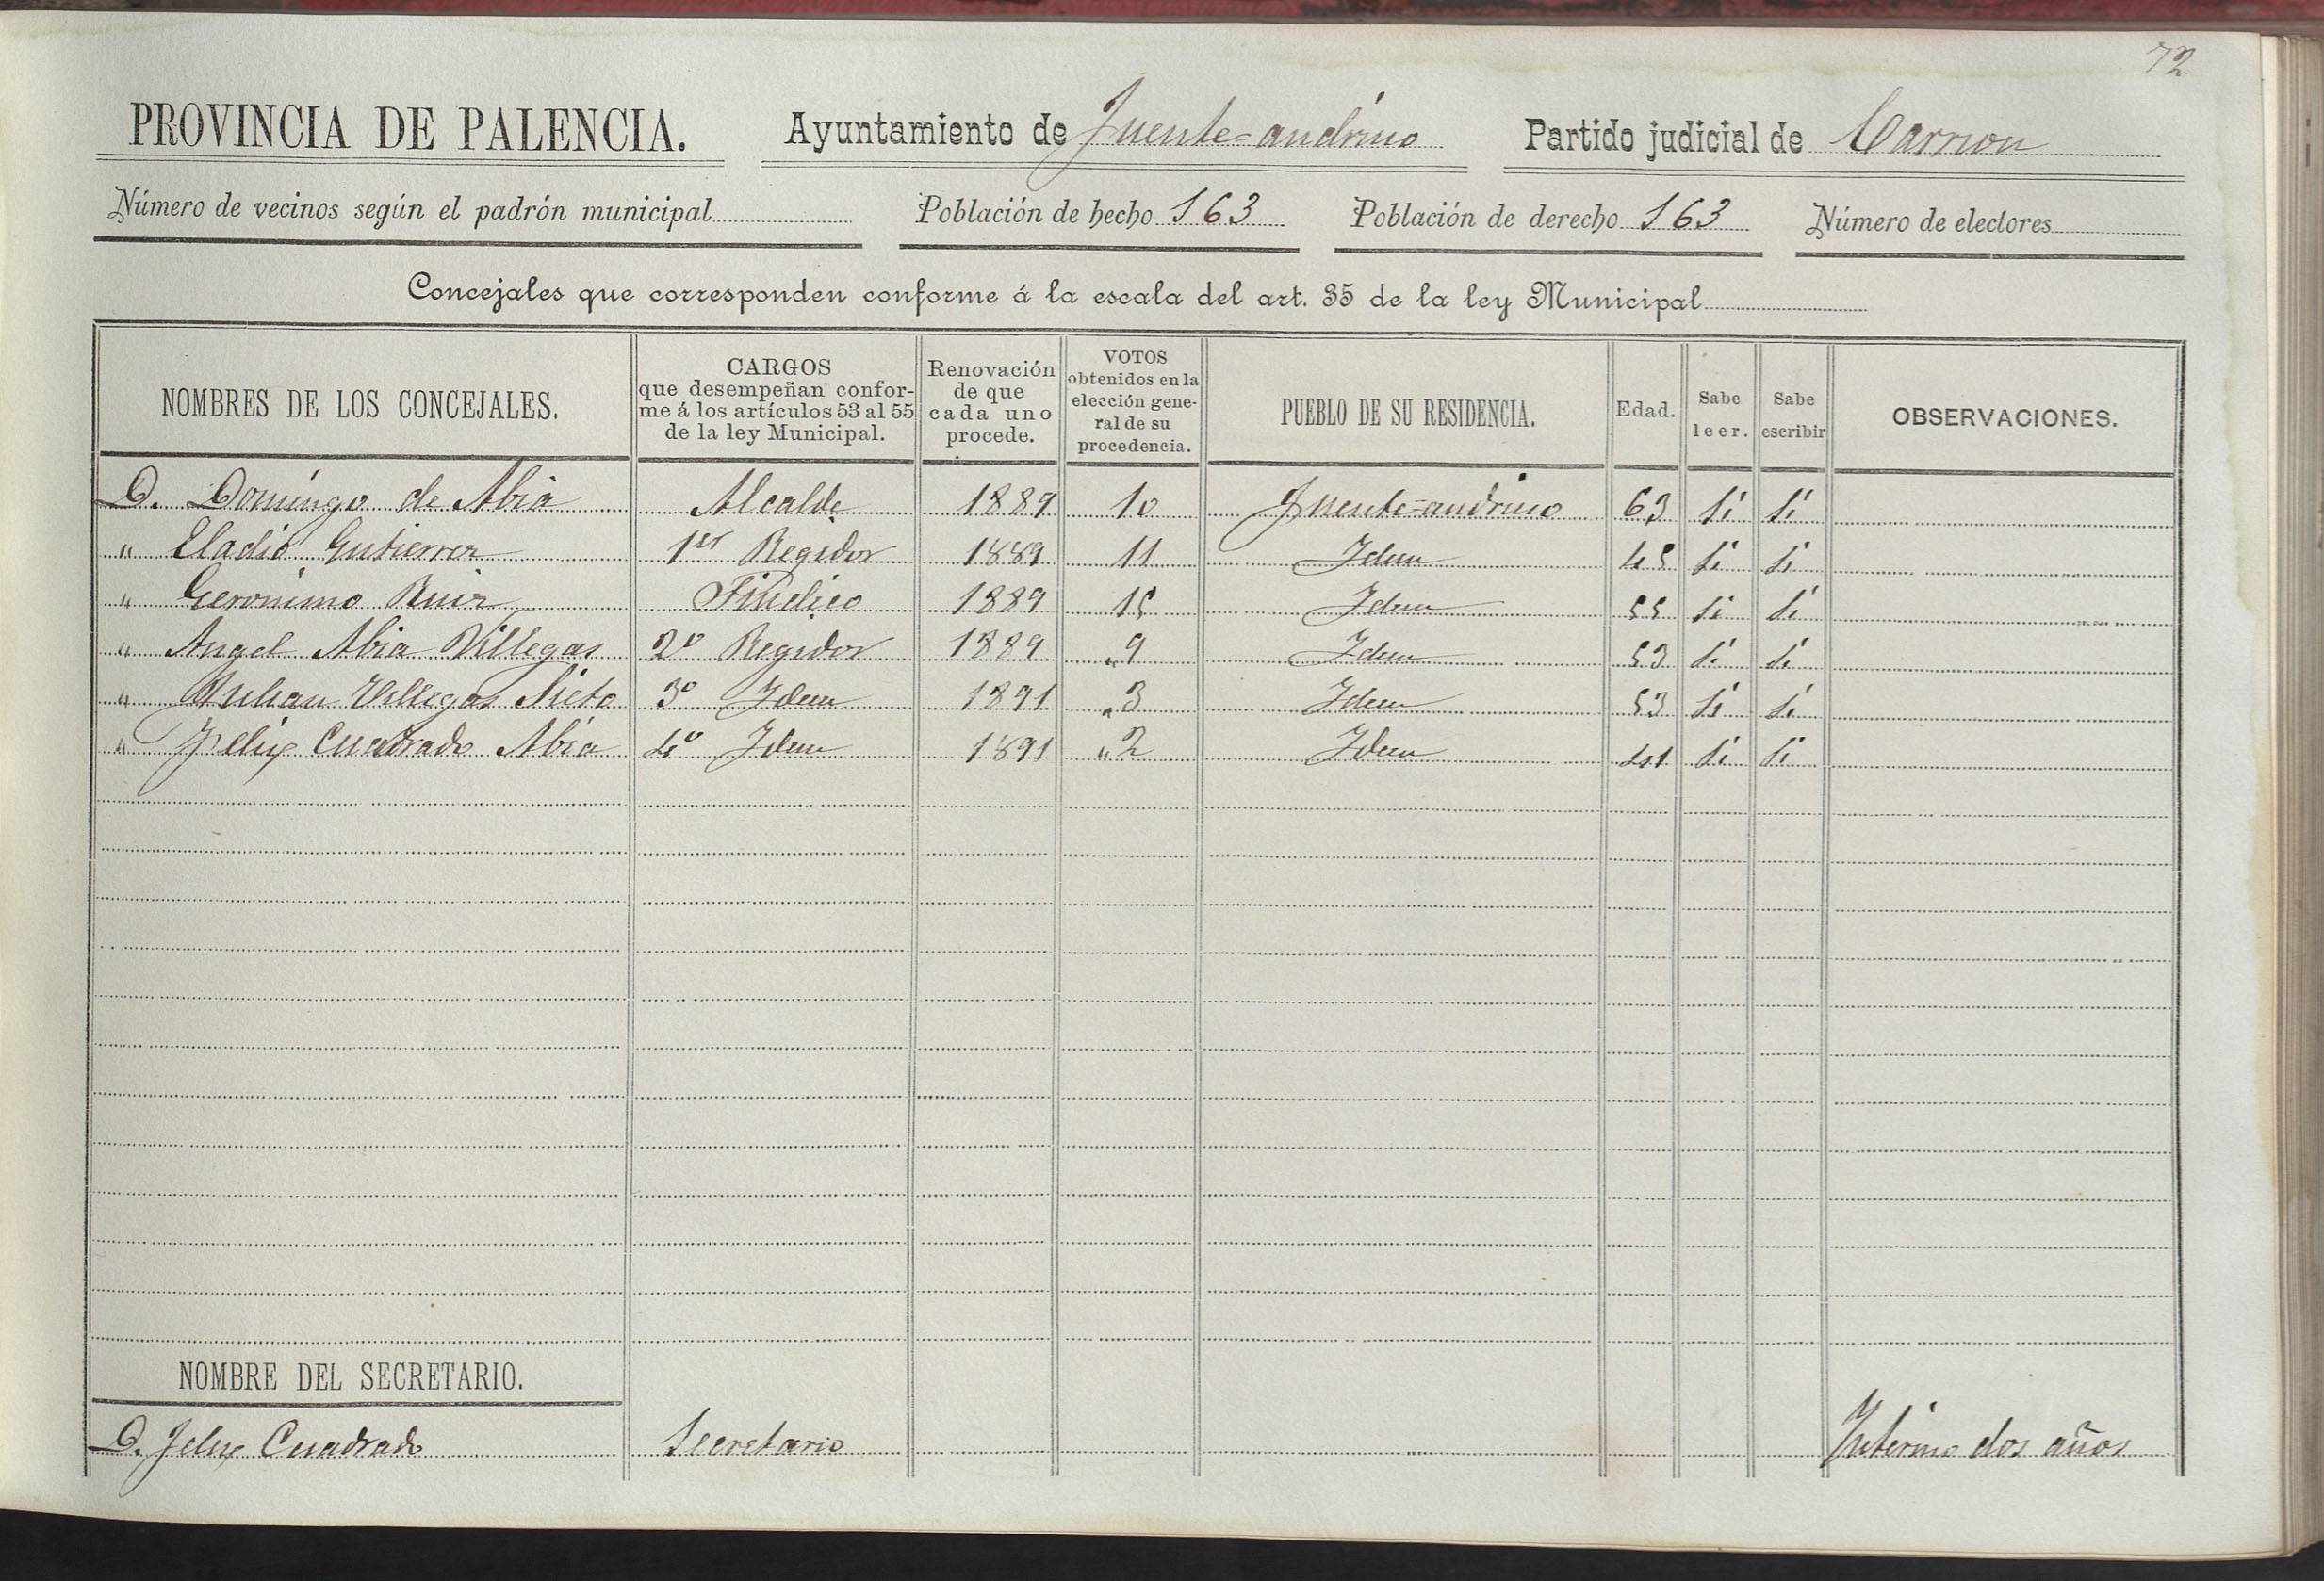 72
PROVINCIA DE PALENCIA. Ayuntamiento de Fuente-andrino Partido judicial de Carrion
Número de vecinos según el padrón municipal Población de hecho 163 Población de derecho 163 Número de electores
Concejales que corresponden conforme á la escala del art. 35 de la ley Municipal
NOMBRES DE LOS CONCEJALES. CARGOS que desempeñan conforme á los artículos 53 al 55 de la ley Municipal. Renovación de que cada uno procede. VOTOS obtenidos en la elección general de su procedencia. PUEBLO DE SU RESIDENCIA. Edad. Sabe leer. Sabe escribir OBSERVACIONES.
D. Domingo de Abia Alcalde 1889 10 Fuente-andrino 63 Si Si
" Eladio Gutierrez 1er Regidor 1889 11 Idem 45 Si Si
" Geronimo Ruiz Sindico 1889 15 Idem 55 Si Si
" Angel Abia Villegas 2º Regidor 1889 "9 Idem 53 Si Si
" Julian Villegas Nieto 3º Idem 1891 "3 Idem 53 Si Si
" Felix Cuadrado Abia 4º Idem 1891 "2 Idem 41 Si Si
NOMBRE DEL SECRETARIO.
D. Felix Cuadrado Secretario Interino dos años